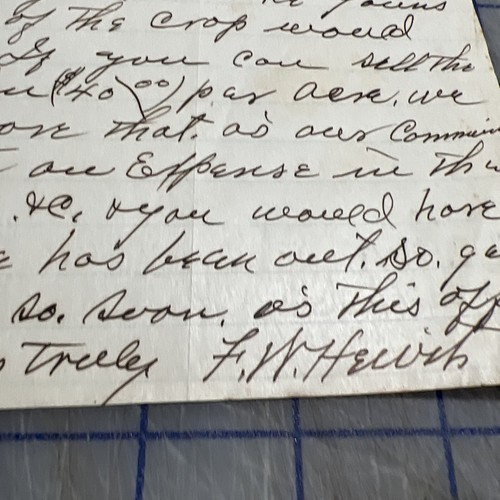 of the crop would
If you can sell the
($40 00) per acre, we
that. as our
an Expense in
&c, & you would have
has been out. So.
so. soon. as this
Truly F. W. Hewit